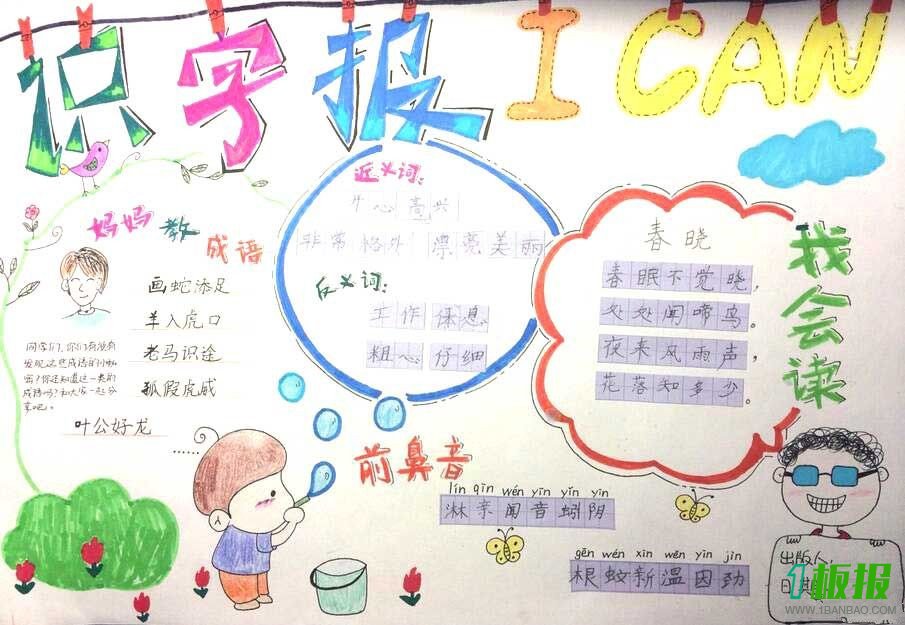 识字报 I CAN
妈妈教成语
画蛇添足
羊入虎口
老马识途
狐假虎威
叶公好龙
......
同学们,你们有没有
发现这些成语的小秘
密?你还知道这一类的
成语吗?和大家一起分
享吧。
近义词:
开心 高兴
非常 格外 漂亮 美丽
反义词:
工作 休息
粗心 仔细
春晓
春眠不觉晓,
处处闻啼鸟。
夜来风雨声,
花落知多少。
我会读
前鼻音
lín qīn wén yīn yǐn yīn
淋亲闻音蚓阴
gēn wén xīn wēn yīn jìn
根蚊新温因劲
出版人:
日期
1板报
WWW.1BANBAO.COM